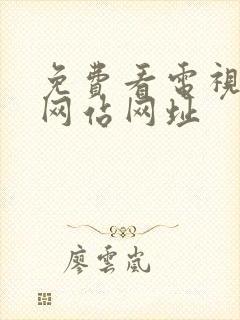 免費看電視
网占网址
廖雲嵐